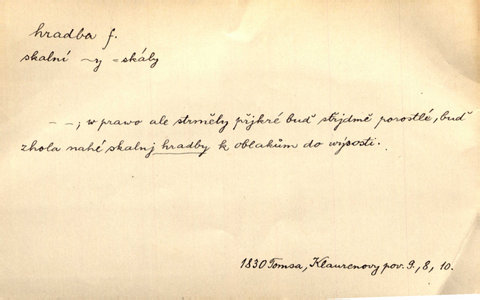 hradba f.
skalní ~y = skály
– – ; w prawo ale strměly přjkré buď střjdmě porostlé, buď
zhola nahé skalnj hradby k oblakům do wýsosti.
1830 Tomsa, Klaurenovy pov. 9., 8, 10.